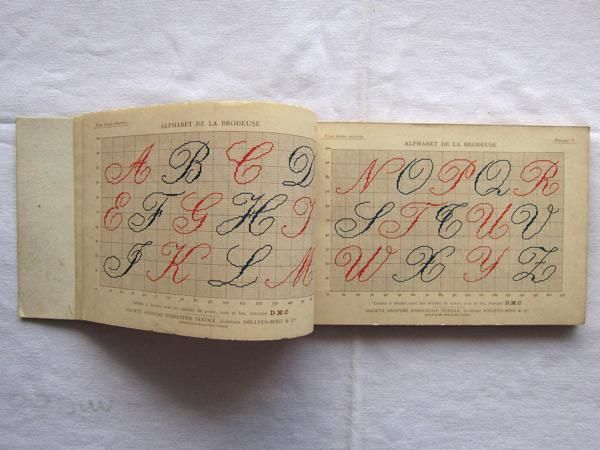 Tous droits réservés.
ALPHABET DE LA BRODEUSE
A B C D
E F G H I
J K L M
Lettres à broder avec les articles de coton, soie et lin, marque D·M·C
SOCIÉTÉ ANONYME D'INDUSTRIE TEXTILE, ci-devant DOLLFUS-MIEG & Cie
Tous droits réservés.
Planche
ALPHABET DE LA BRODEUSE
N O P Q R
S T T U V
W X Y Z
Lettres à broder avec les articles de coton, soie et lin, marque D·M·C
SOCIÉTÉ ANONYME D'INDUSTRIE TEXTILE, ci-devant DOLLFUS-MIEG & Cie